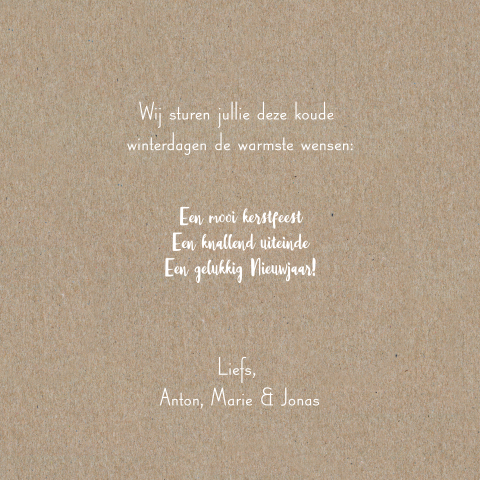 Wij sturen jullie deze koude
winterdagen de warmste wensen:
Een mooi kerstfeest
Een knallend uiteinde
Een gelukkig Nieuwjaar!
Liefs,
Anton, Marie & Jonas